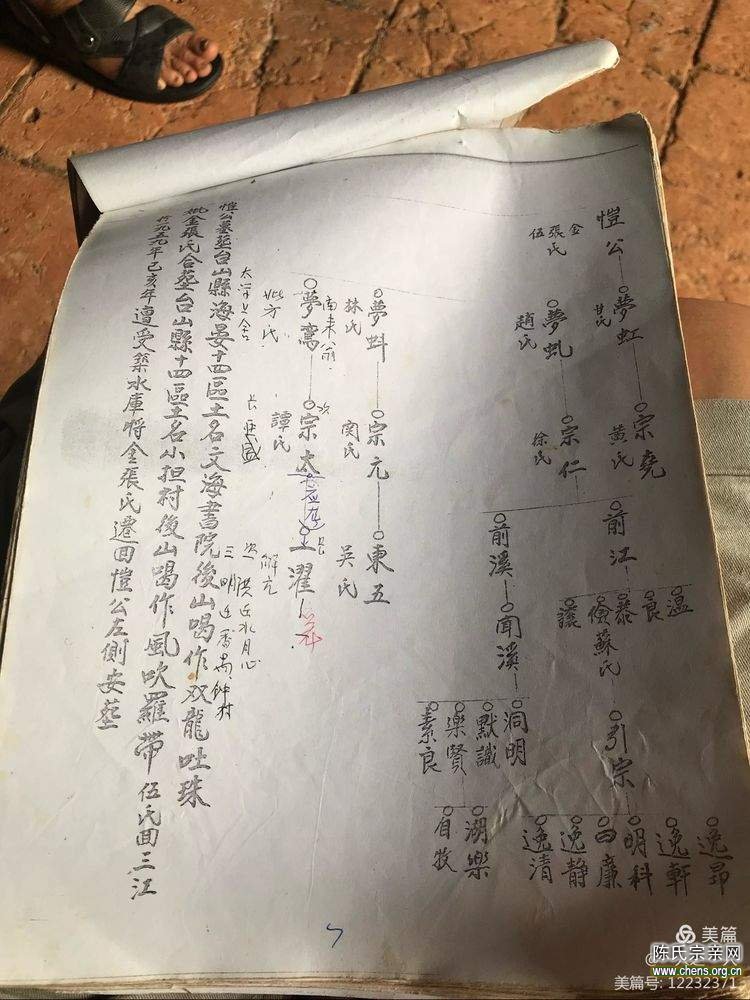 愷公
金
張氏
伍
夢虹
甘氏
夢虬
趙氏
夢蚪
林氏
南來翁
夢鸞
妣方氏
宗堯
黃氏
宗仁
徐氏
宗元
関氏
次
宗太
譚氏
長
前江
前溪
東五
吳氏
士濯
解元
聞溪
溫
良
恭
儉
讓
蘇氏
引宗
洞明
默識
樂賢
素良
湖樂
自牧
逸昂
逸軒
明科
四廉
逸靜
逸清
太学上舍
愷公墓塟台山縣海晏十四區土名文海書院後山喝作双龍吐珠
妣金張氏合塟台山縣十四區土名小担村後山喝作風吹羅帶 伍氏回三江
於一九五九年己亥年遭受築水庫將金張氏遷回愷公左側安塟
7
美篇
陈氏宗亲网
www.chens.org.cn
美篇号: 12232371